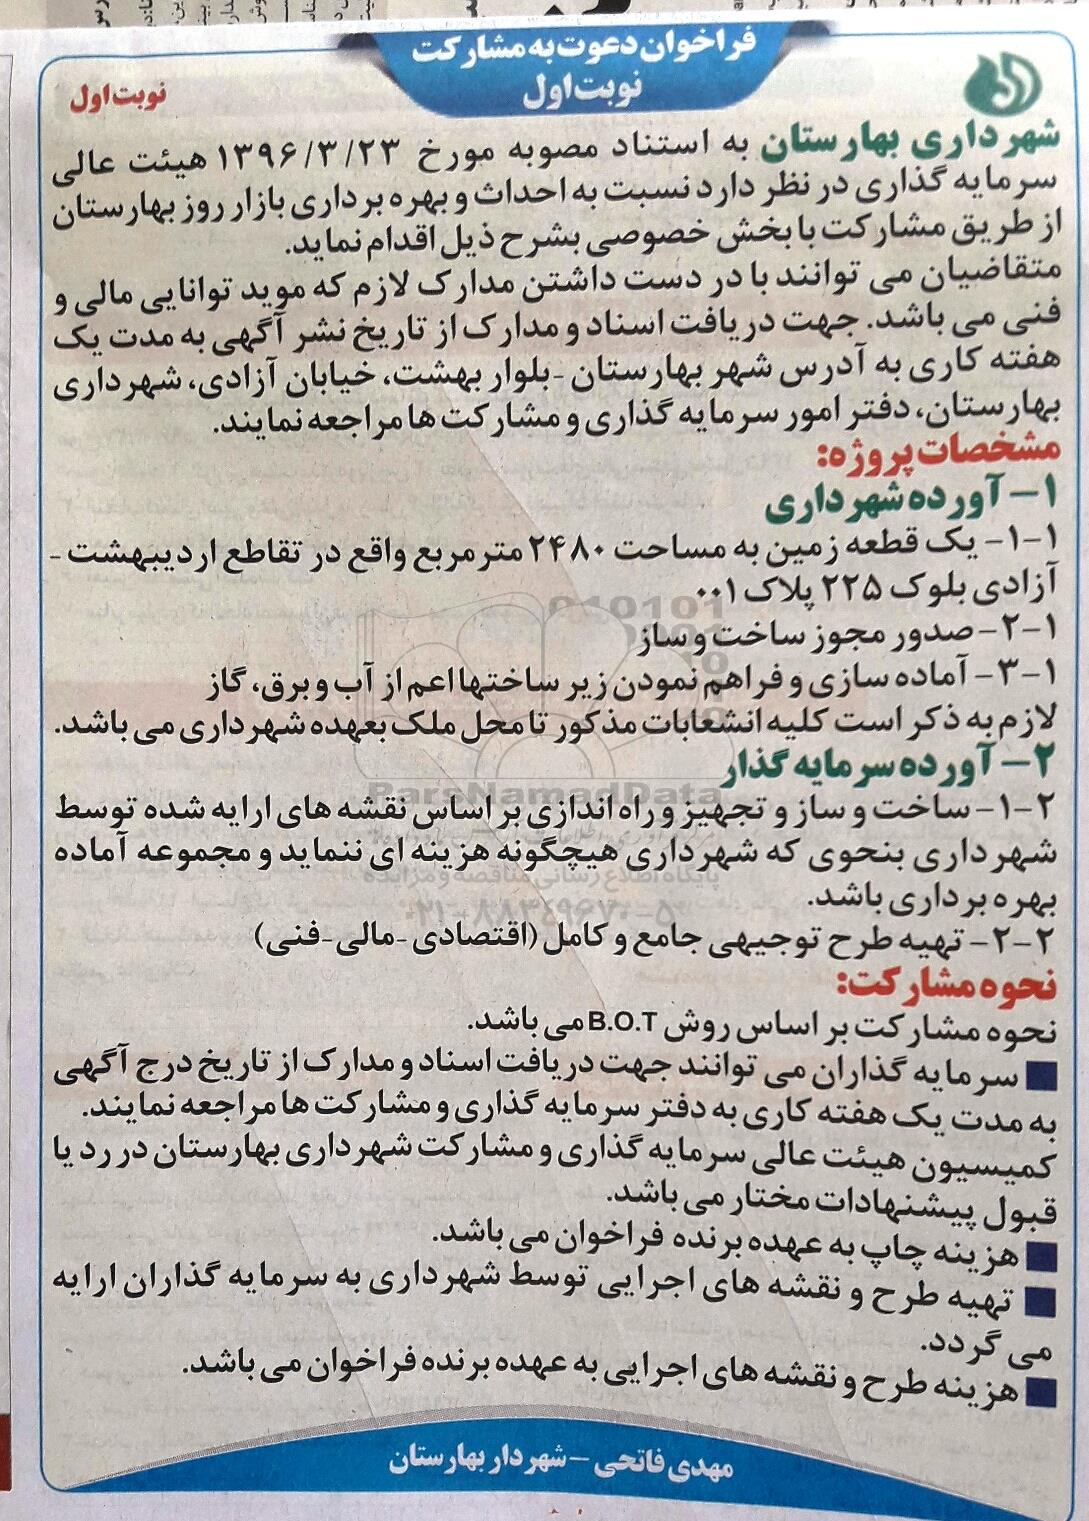 فراخوان دعوت به مشارکت
نوبت اول
نوبت اول
شهرداری بهارستان به استناد مصوبه مورخ ۱۳۹۶/۳/۲۳ هیئت عالی
سرمایه گذاری در نظر دارد نسبت به احداث و بهره برداری بازار روز بهارستان
از طریق مشارکت با بخش خصوصی بشرح ذیل اقدام نماید.
متقاضیان می توانند با در دست داشتن مدارک لازم که موید توانایی مالی و
فنی می باشد. جهت دریافت اسناد و مدارک از تاریخ نشر آگهی به مدت یک
هفته کاری به آدرس شهر بهارستان -بلوار بهشت، خیابان آزادی، شهرداری
بهارستان، دفتر امور سرمایه گذاری و مشارکت ها مراجعه نمایند.
مشخصات پروژه:
۱- آورده شهرداری
۱-۱- یک قطعه زمین به مساحت ۲۴۸۰ مترمربع واقع در تقاطع اردیبهشت -
آزادی بلوک ۲۲۵ پلاک ۰۰۱
۲-۱- صدور مجوز ساخت و ساز
۳-۱- آماده سازی و فراهم نمودن زیر ساختها اعم از آب و برق، گاز
لازم به ذکر است کلیه انشعابات مذکور تا محل ملک بعهده شهرداری می باشد.
۲- آورده سرمایه گذار
۱-۲- ساخت و ساز و تجهیز و راه اندازی بر اساس نقشه های ارایه شده توسط
شهرداری بنحوی که شهرداری هیچگونه هزینه ای ننماید و مجموعه آماده
بهره برداری باشد.
۲-۲- تهیه طرح توجیهی جامع و کامل (اقتصادی -مالی-فنی)
نحوه مشارکت:
نحوه مشارکت بر اساس روش B.O.T می باشد.
■ سرمایه گذاران می توانند جهت دریافت اسناد و مدارک از تاریخ درج آگهی
به مدت یک هفته کاری به دفتر سرمایه گذاری و مشارکت ها مراجعه نمایند.
کمیسیون هیئت عالی سرمایه گذاری و مشارکت شهرداری بهارستان در رد یا
قبول پیشنهادات مختار می باشد.
■ هزینه چاپ به عهده برنده فراخوان می باشد.
■ تهیه طرح و نقشه های اجرایی توسط شهرداری به سرمایه گذاران ارایه
می گردد.
■ هزینه طرح و نقشه های اجرایی به عهده برنده فراخوان می باشد.
مهدی فاتحی - شهردار بهارستان
ParsNamadData
پایگاه اطلاع رسانی مناقصه و مزایده
۰۲۱-۸۸۳۴۹۶۷۰-۵